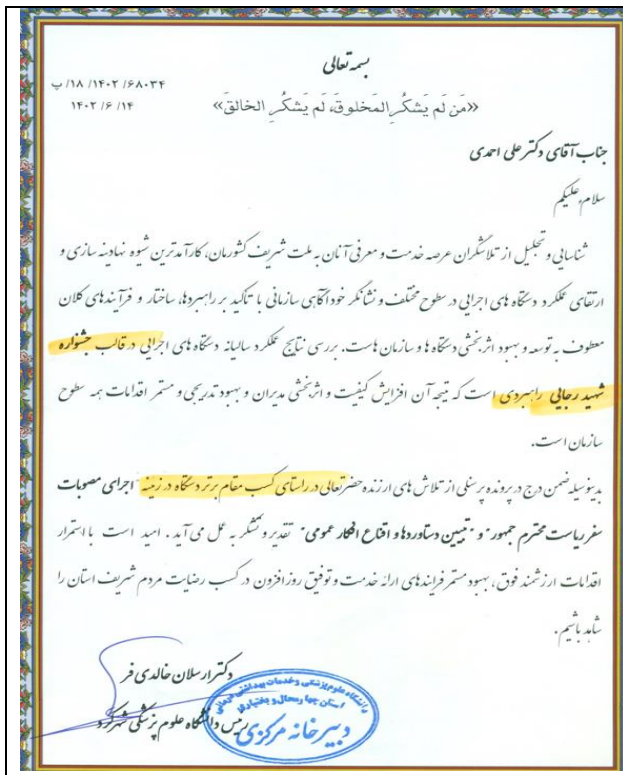 بسمه تعالی
۶۸۰۳۴/ ۱۴۰۲/ ۱۸/ پ
«مَن لَم يَشكُرِ المَخلوقَ، لَم يَشكُرِ الخالقَ»
۱۴۰۲ /۶ /۱۴
جناب آقای دکتر علی احمدی
سلام علیکم
شناسایی و تجلیل از تلاشگران عرصه خدمت و معرفی آنان به ملت شریف کشورمان، کارآمدترین شیوه نهادینه سازی و
ارتقای عملکرد دستگاه های اجرایی در سطوح مختلف و نشانگر خودآگاهی سازمانی با تأکید بر راهبردها، ساختار و فرآیندهای کلان
معطوف به توسعه و بهبود اثربخشی دستگاه ها و سازمان هاست. بررسی نتایج عملکرد سالیانه دستگاه های اجرایی در قالب جشنواره
شهید رجایی راهبردی است که نتیجه آن افزایش کیفیت و اثربخشی مدیران و بهبود تدریجی و مستمر اقدامات همه سطوح
سازمان است.
بدینوسیله ضمن درج در پرونده پرسنلی از تلاش های ارزنده حضرتعالی در راستای کسب مقام برتر دستگاه در زمینه "اجرای مصوبات
سفر ریاست محترم جمهور" و "تبیین دستاوردها و اقناع افکار عمومی" تقدیر و تشکر به عمل می آید. امید است با استمرار
اقدامات ارزشمند فوق، بهبود مستمر فرایندهای ارائه خدمت و توفیق روزافزون در کسب رضایت مردم شریف استان را
شاهد باشیم.
دکتر ارسلان خالدی فر
رییس دانشگاه علوم پزشکی شهرکرد
دانشگاه علوم پزشکی و خدمات بهداشتی درمانی
استان چهارمحال و بختیاری
دبیرخانه مرکزی